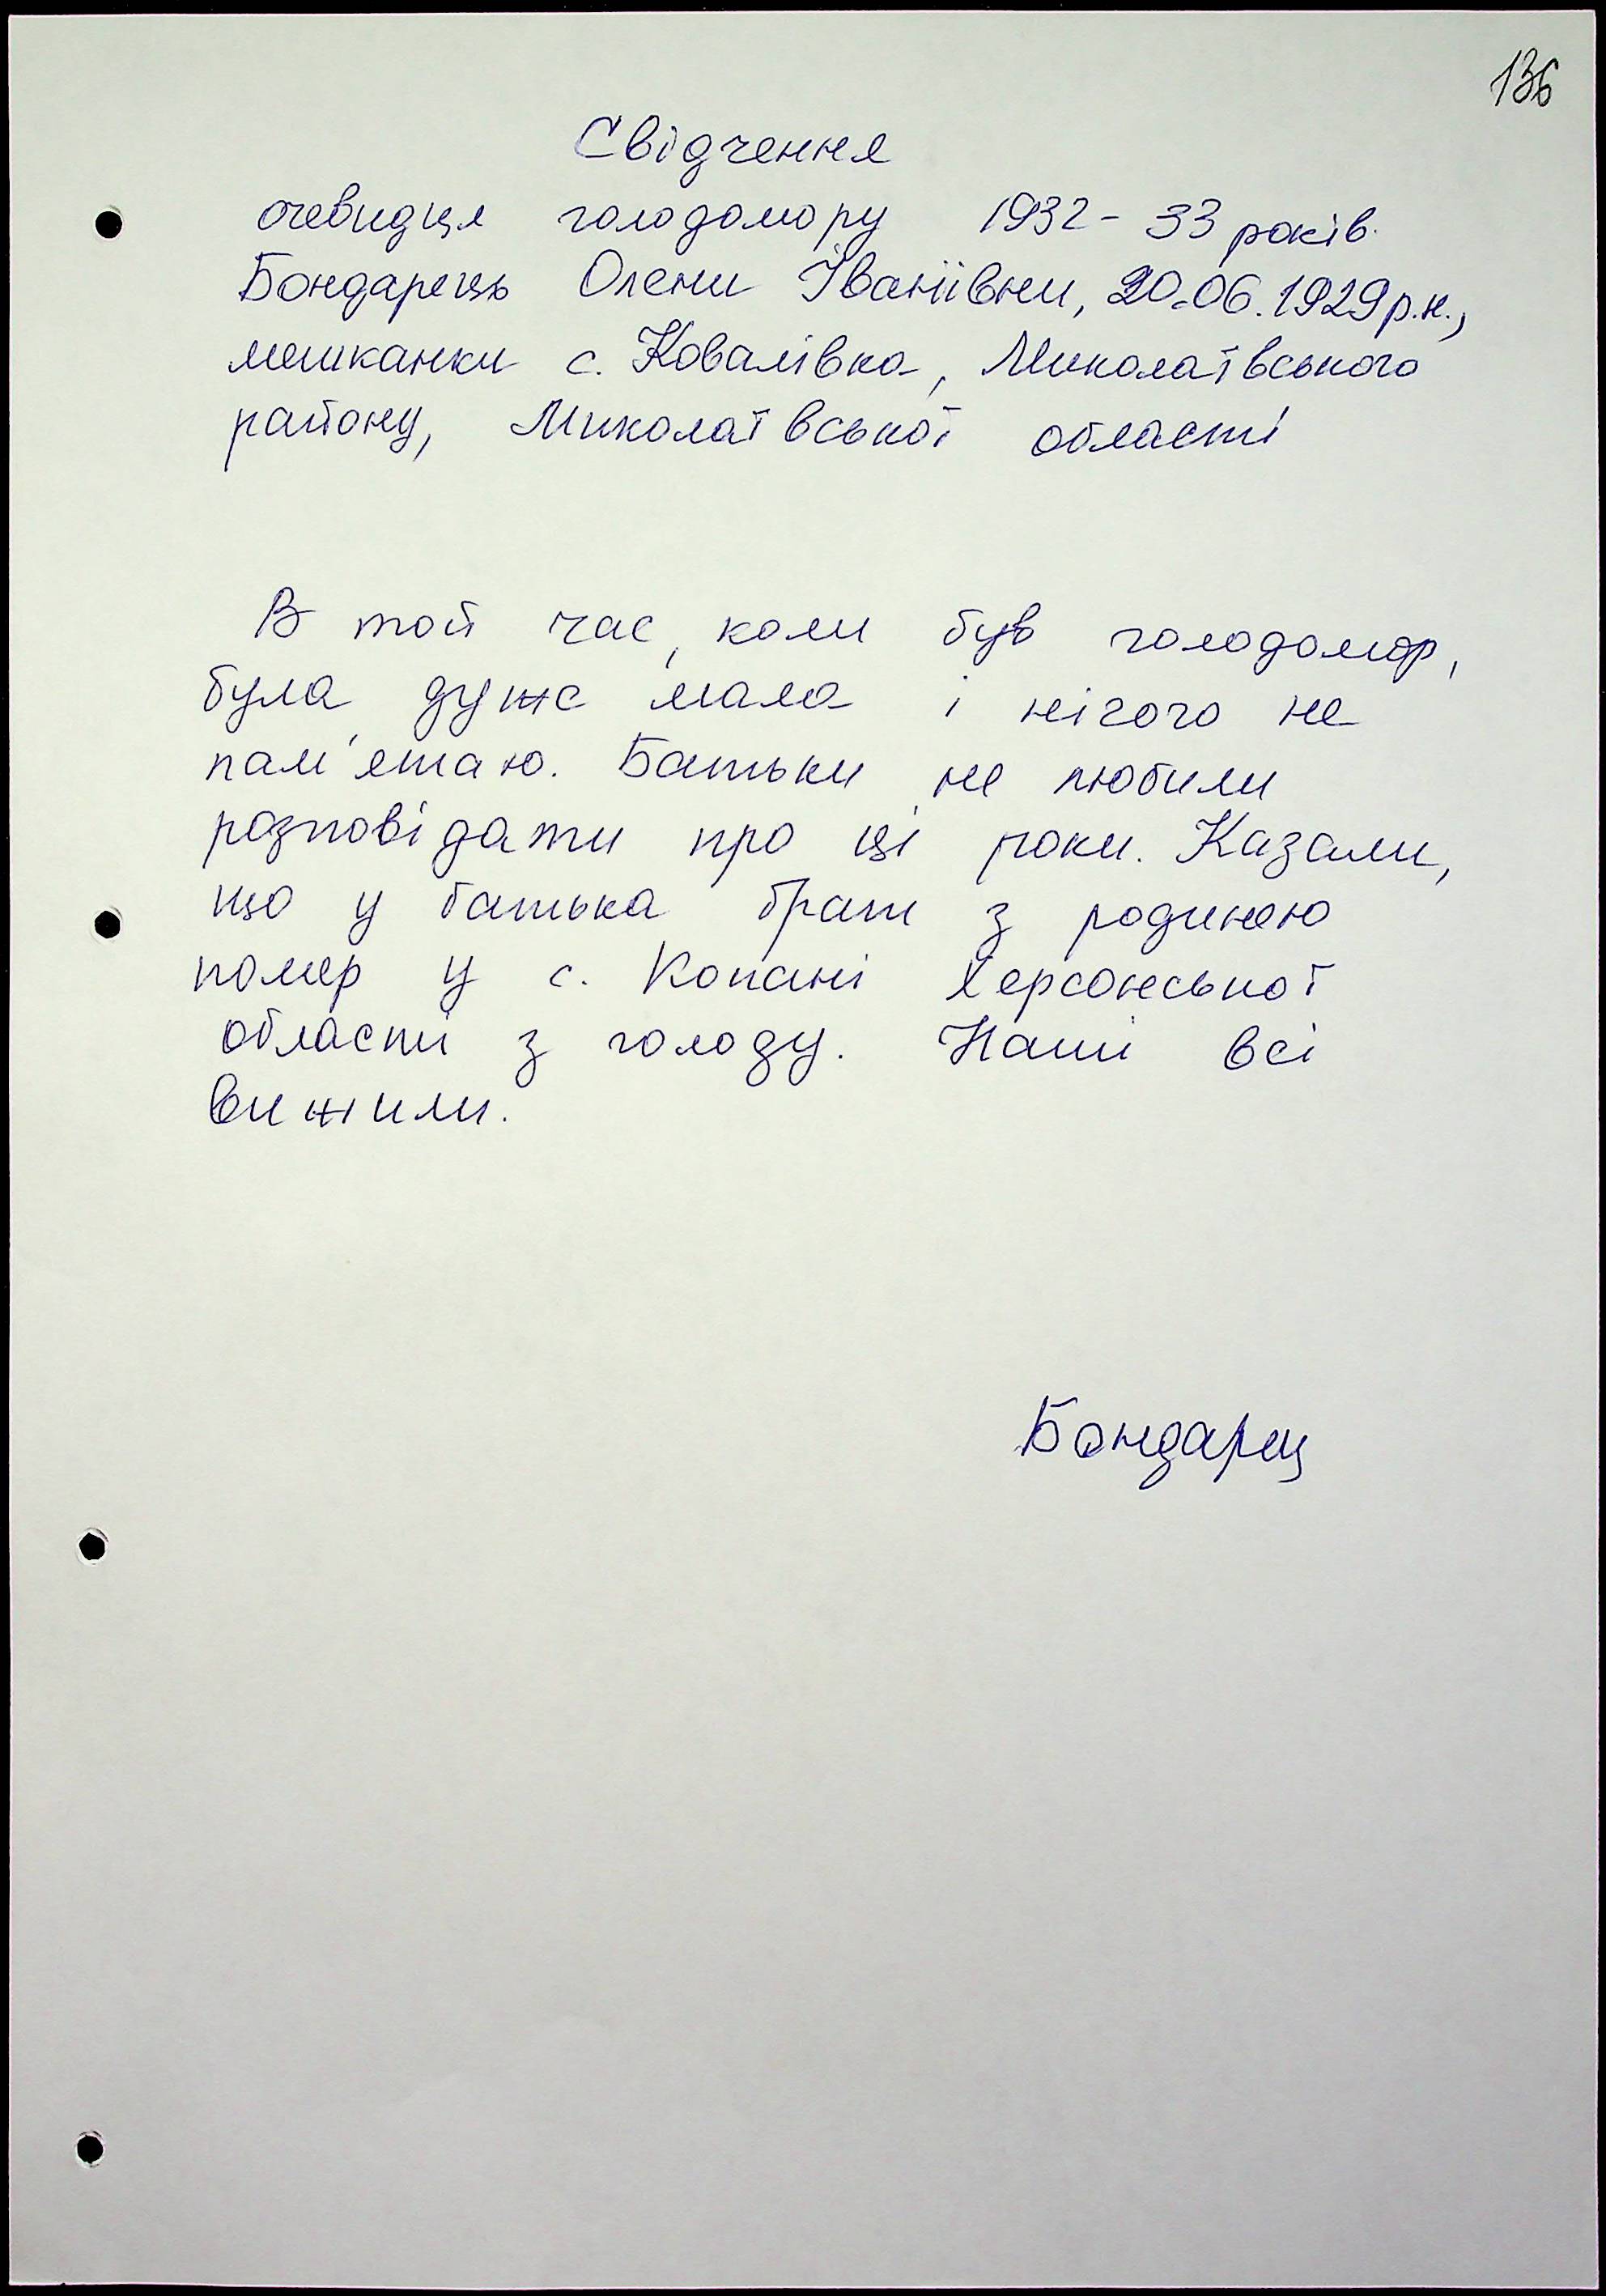 136
Свідчення
очевидця голодомору 1932-33 років.
Бондарець Олени Іванівни, 20.06.1929р.н.,
мешканки с. Ковалівка, Миколаївського
району, Миколаївської області
В той час, коли був голодомор,
була дуже мала і нічого не
пам'ятаю. Батьки не любили
розповідати про ці роки. Казали,
що у батька брат з родиною
помер у с. Копані Херсонської
області з голоду. Наші всі
вижили.
Бондарец